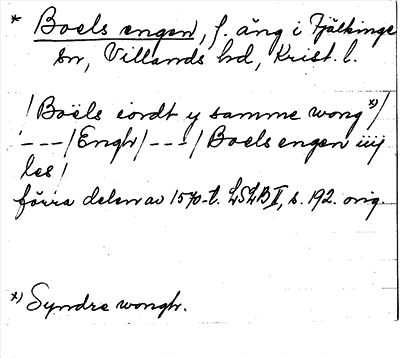 * Boels engen, f. äng i Fjälkinge
sn, Villands hd, Krist. l.
/ Boëls iordt y samme wong *) /
- - - / Engh / - - - / Boels engen iiij
les /
förra delen av 1570-t. LSLB II, s. 192. orig.
*) Syndre wongh.